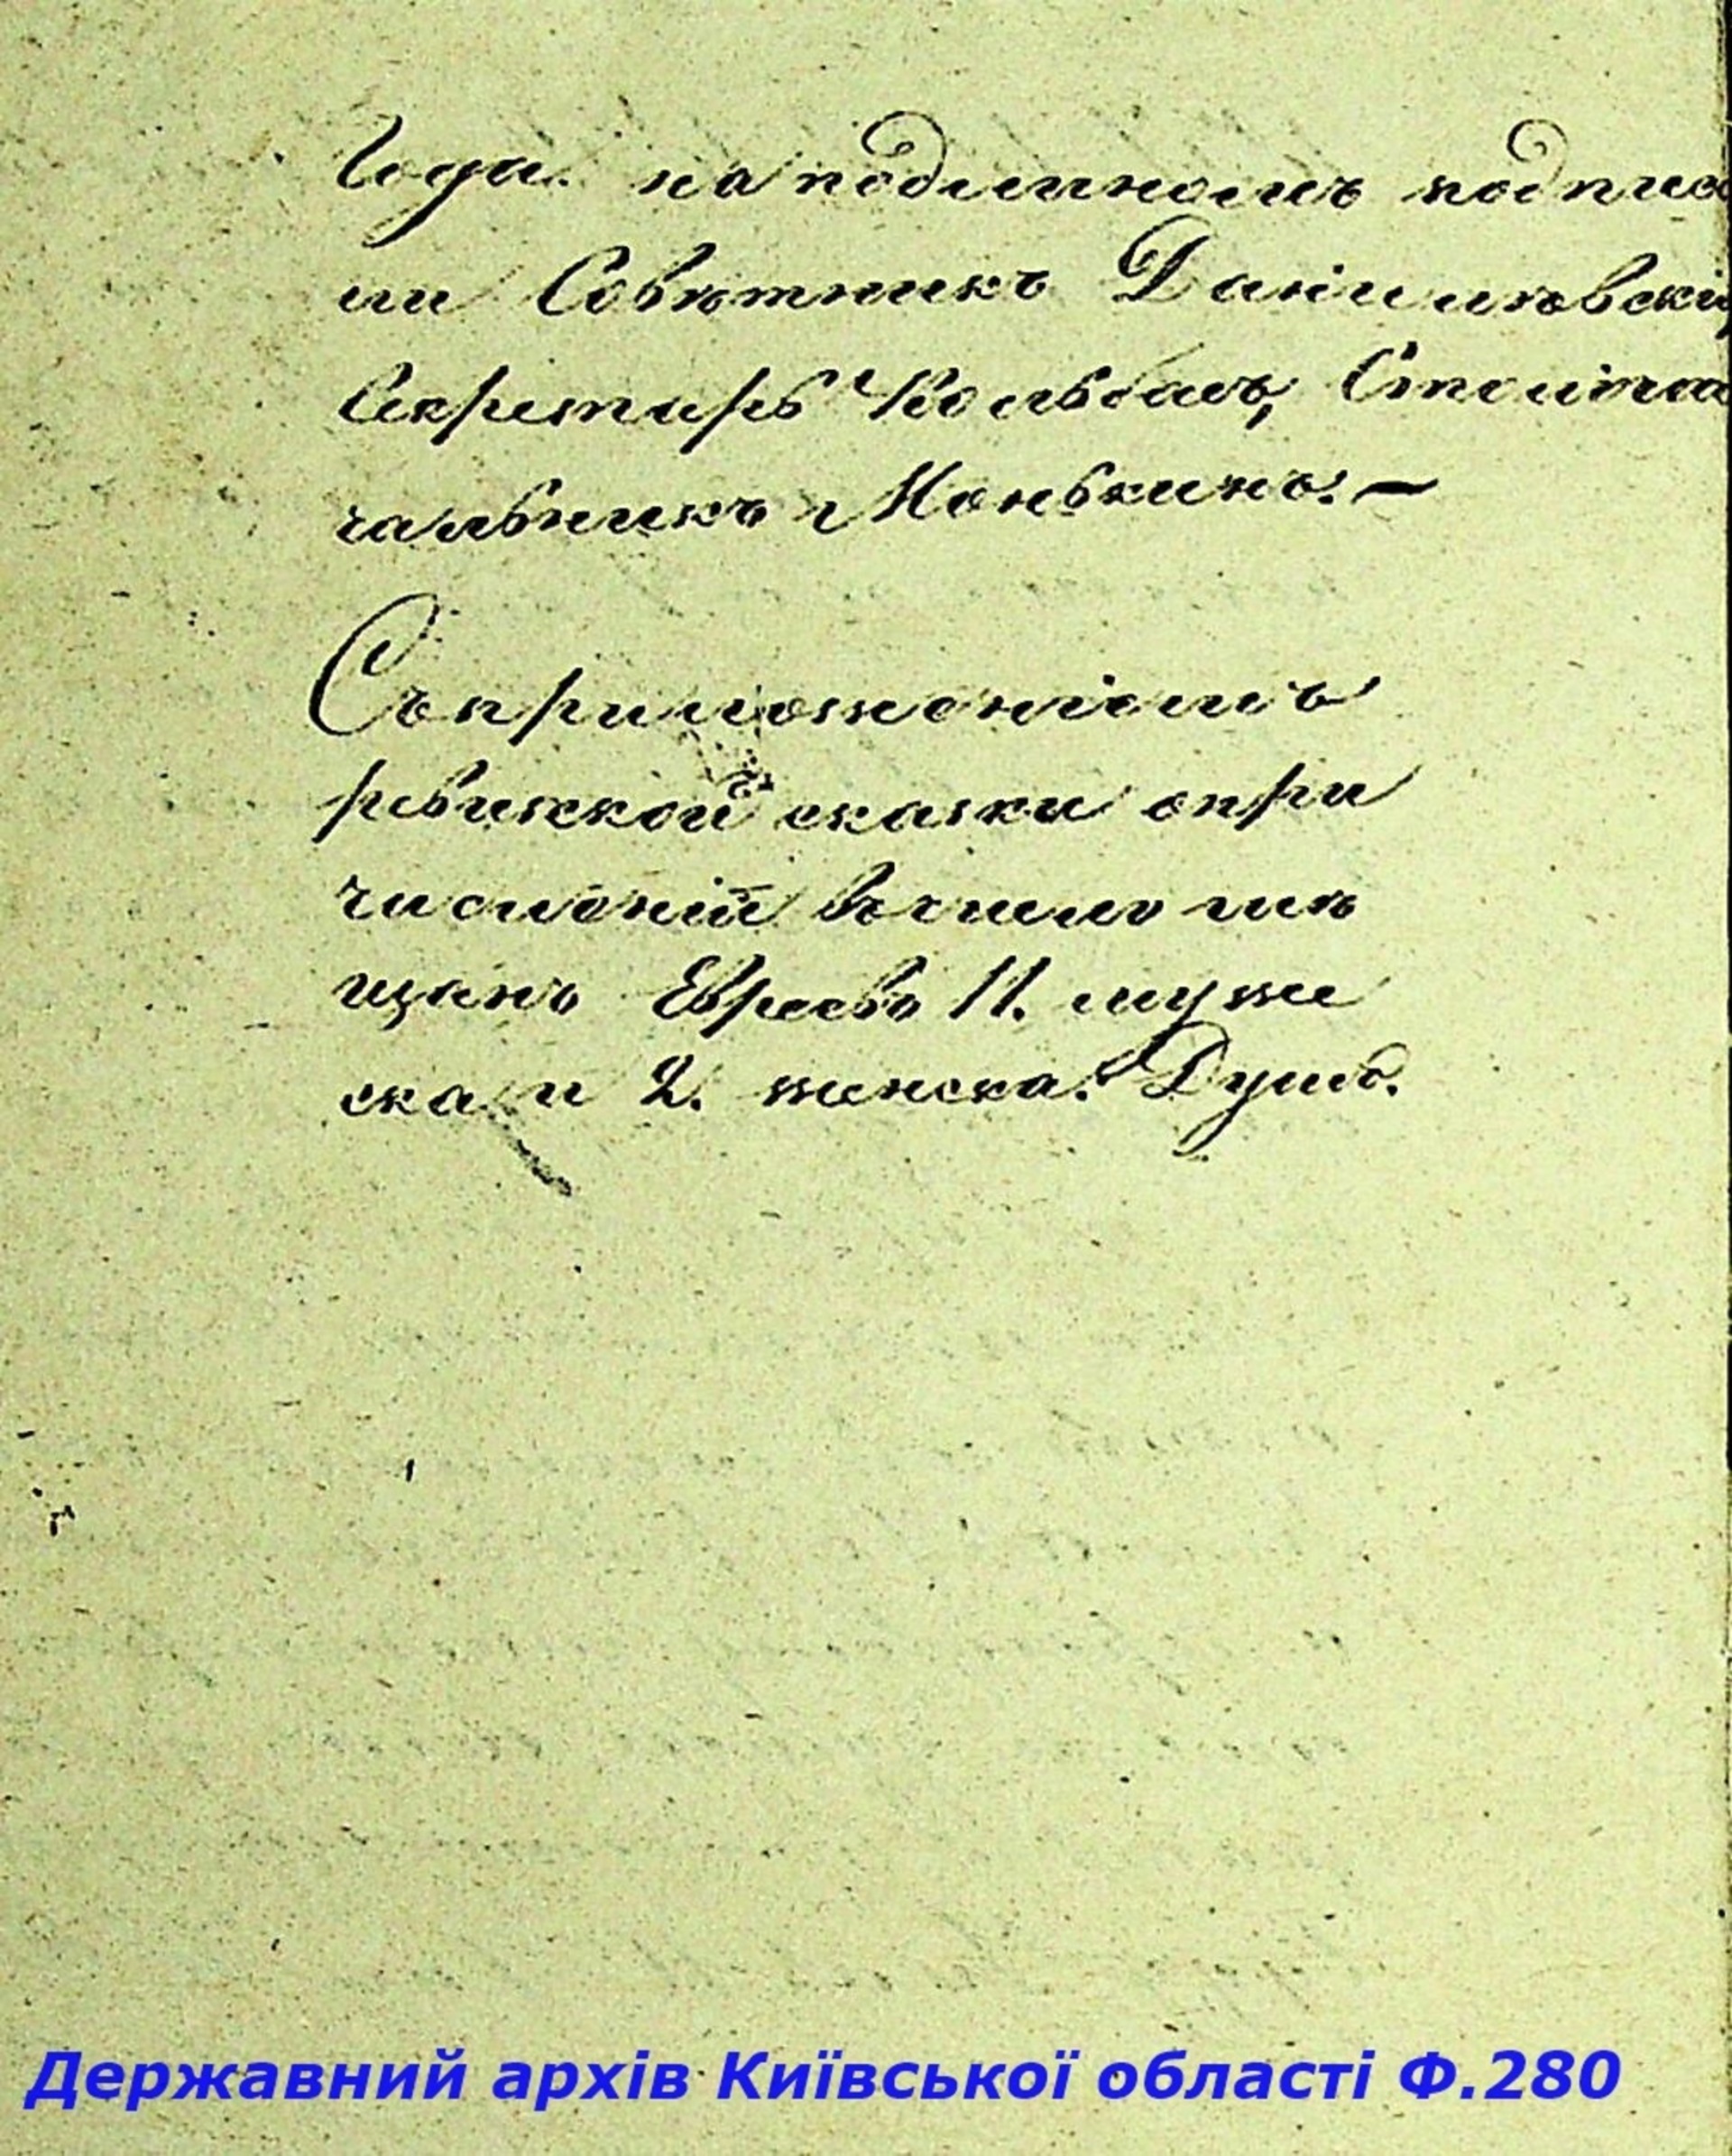 Года. на подлинномъ подписа
ли Совѣтникъ Даниловскій
Секретарь Столона
чальникъ Монькинъ. —
Съ приложеніемъ
ревижкой скаски опри
численій въ число мѣ
щанъ Евреевъ 11. муже
ска и 2. женска. Душъ.
Державний архів Київської області Ф.280